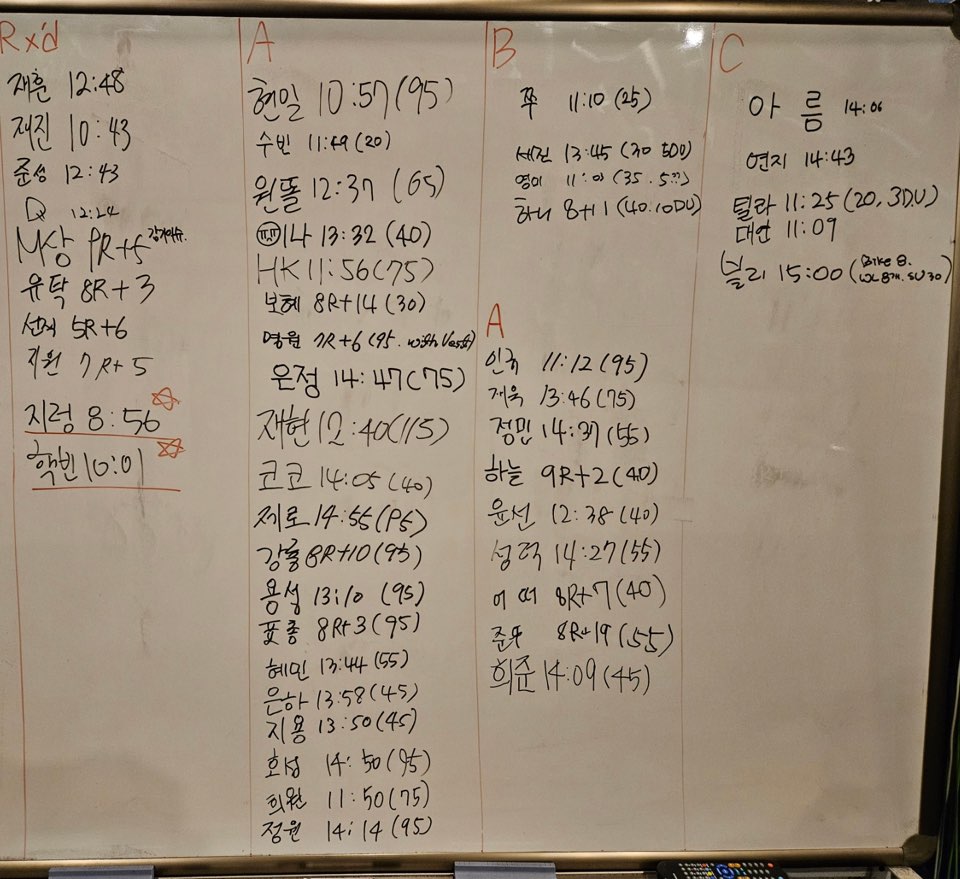 Rx'd
재훈 12:48
재진 10:43
준성 12:43
DX 12:24
M상 9R+5 감기이슈.
유탁 8R+3
선제 5R+6
지원 7R+5
지렁 8:56
학빈 10:01
A
현일 10:57(95)
수빈 11:49(20)
원똘 12:37 (65)
미나 13:32 (40)
HK 11:56(75)
보혜 8R+14(30)
명원 7R+6(95. with Vest)
은정 14:47(75)
재현 12:40(115)
코코 14:05(40)
제로 14:55(95)
강룡 8R+10(95)
용성 13:10 (95)
표종 8R+3(95)
혜민 13:44(55)
은하 13:58(45)
지용 13:50(45)
호성 14:50(95)
희원 11:50(75)
정원 14:14(95)
B
쭈 11:10(25)
세진 13:45 (30 50U)
영이 (35.
하니 8+11 (40.10DU)
A
인국 11:12(95)
제욱 13:46(75)
정민 14:37(55)
하늘 9R+2(40)
윤선 12:38(40)
성덕 14:27(55)
어떠 8R+7(40)
준우 8R+19(55)
희준 14:09(45)
C
아름 14:06
연지 14:43
틸라 11:25(20, 3D.U)
대연 11:09
빌리 15:00(Bike 8. WL 8개. SU 30)